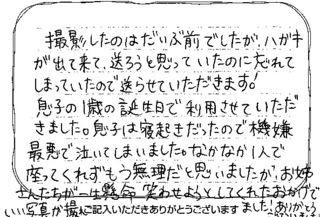 撮影したのはだいぶ前でしたが、ハガキ
が出て来て、送ろうと思っていたのに忘れて
しまっていたので送らせていただきます!
息子の1歳の誕生日で利用させていただ
きました。息子は寝起きだったので機嫌
最悪で泣いてしまいました。なかなか1人で
座ってくれずもう無理だと思いましたが、お姉
さんたちが一生懸命笑わせようとしてくれたおかげで
いい写真が撮
ご記入いただきありがとうございます
ました!ありがとう